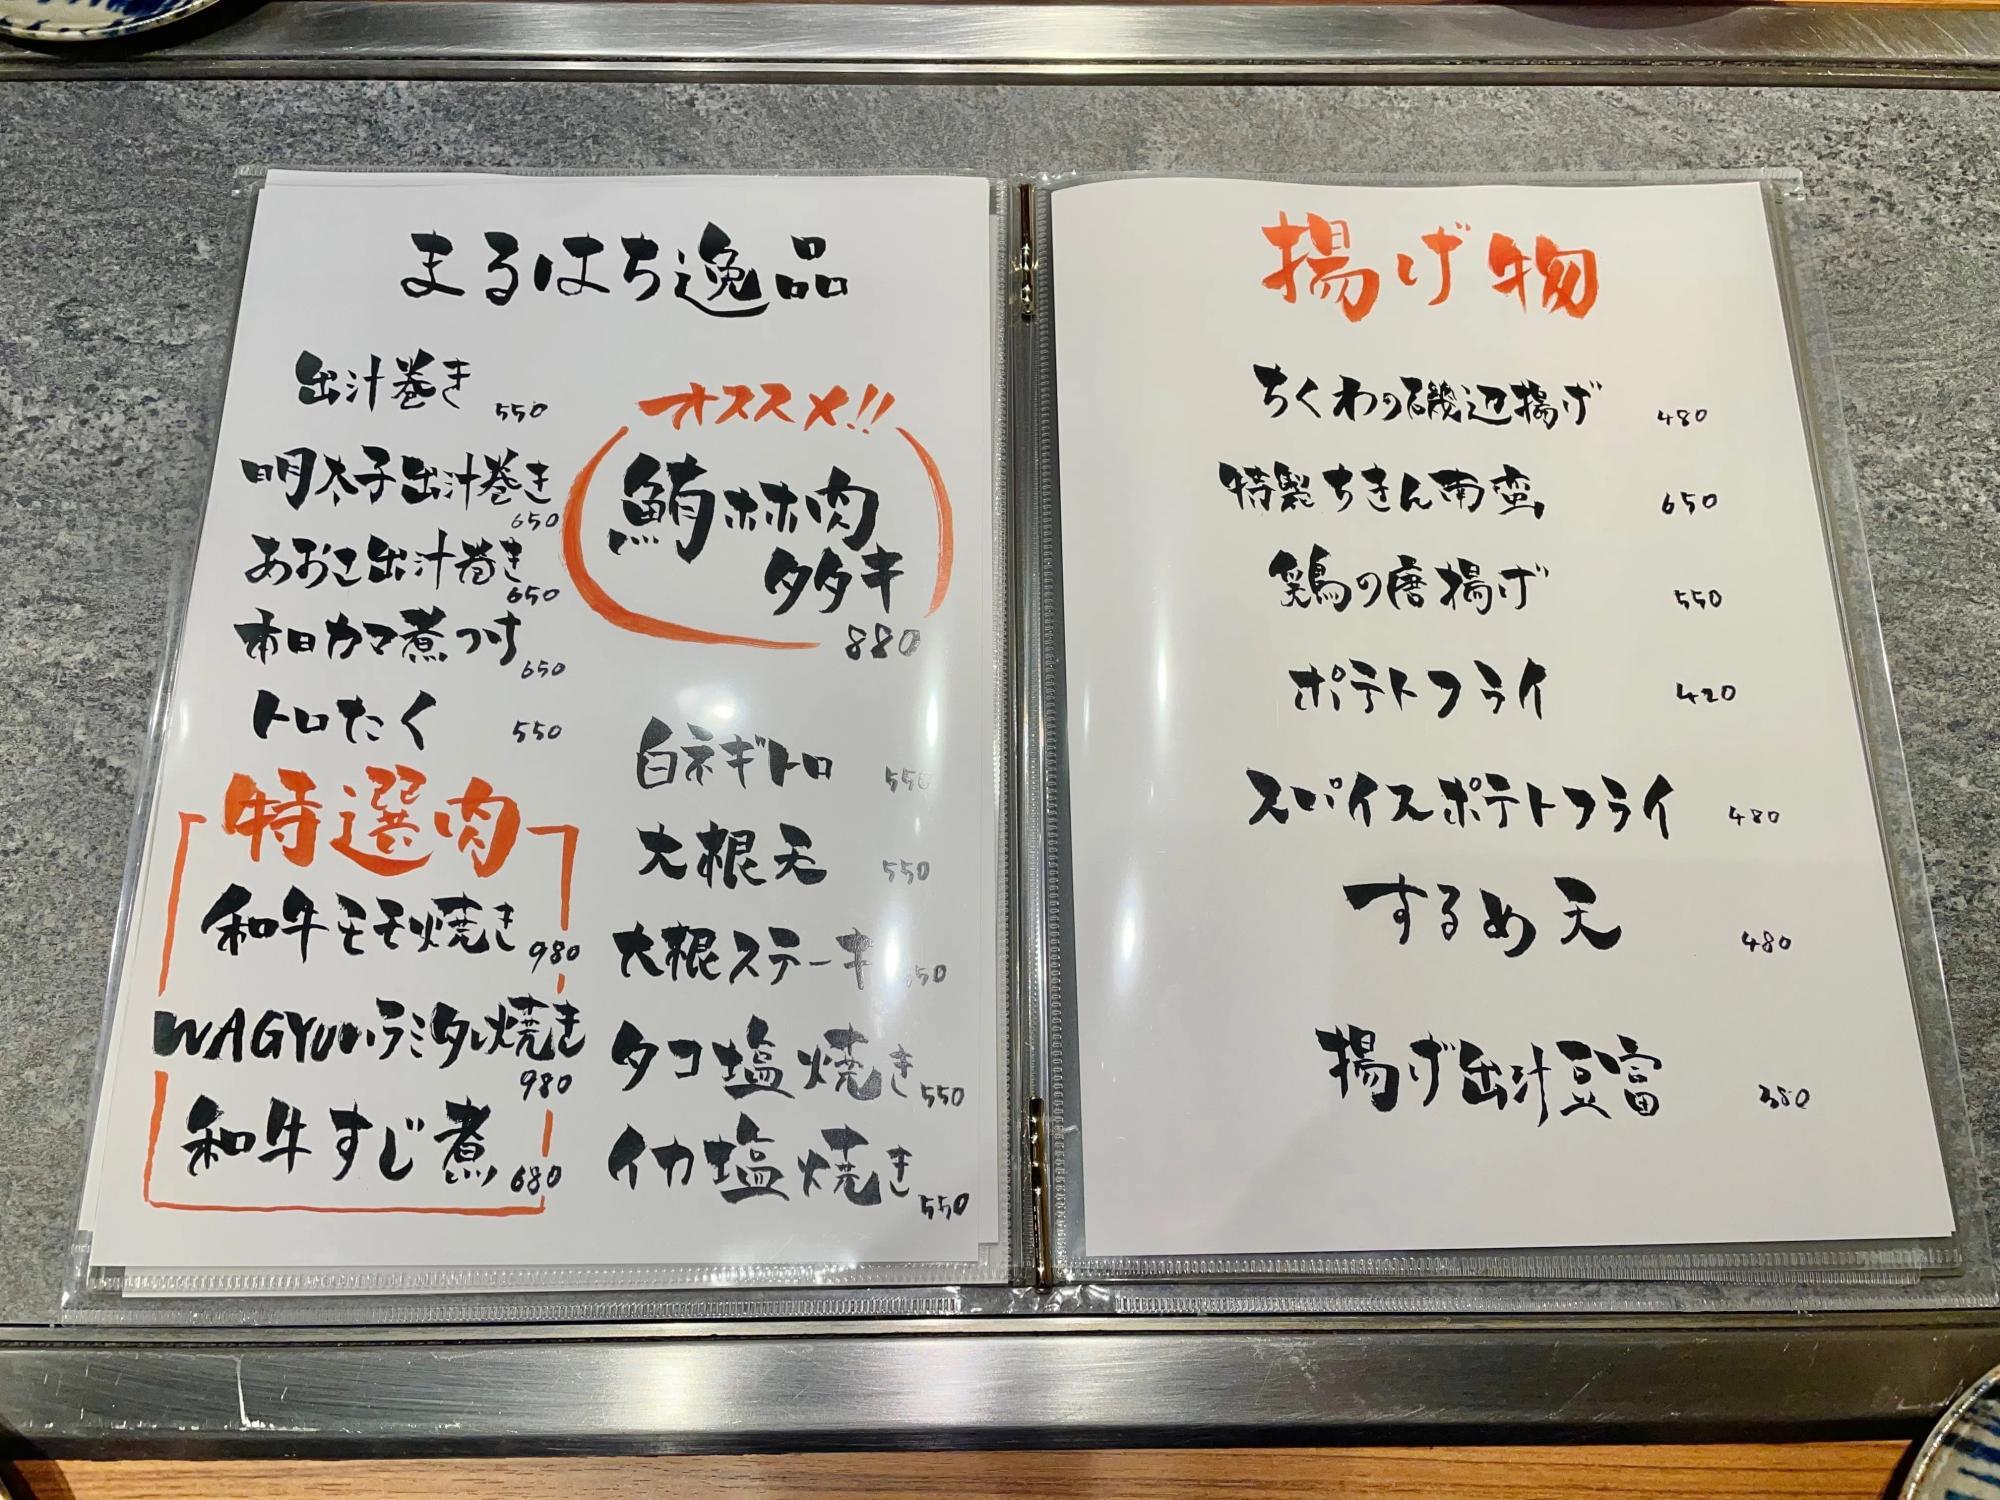 まるはち逸品
出汁巻き 550
明太子出汁巻き 650
あおさ出汁巻き 650
本日カマ煮つけ 650
トロたく 550
オススメ!!
鮪ホホ肉
タタキ
880
特選肉
和牛モモ焼き 980
WAGYUハラミタレ焼き
980
和牛すじ煮 680
白ネギトロ 550
大根天 550
大根ステーキ
タコ塩焼き 550
イカ塩焼き 550
揚げ物
ちくわの磯辺揚げ 480
特製ちきん南蛮 650
鶏の唐揚げ 550
ポテトフライ 420
スパイスポテトフライ 480
するめ天 480
揚げ出汁豆富